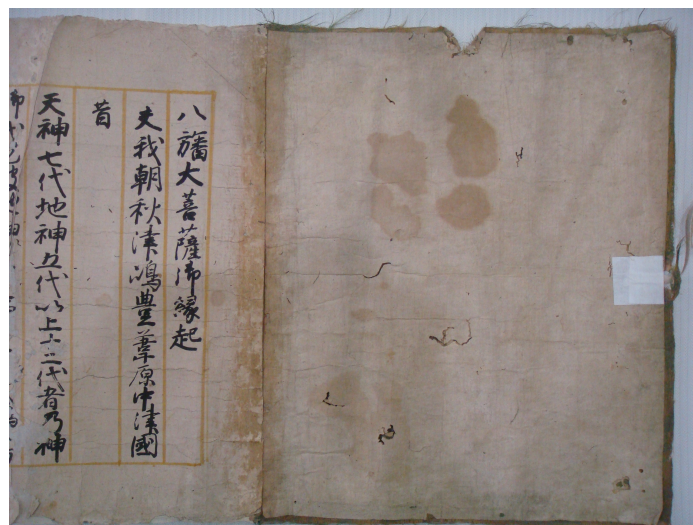 八旛大菩薩御縁起
夫我朝秋津嶋豊葦原中津國
昔
天神七代地神五代以上十二代者乃神
御代